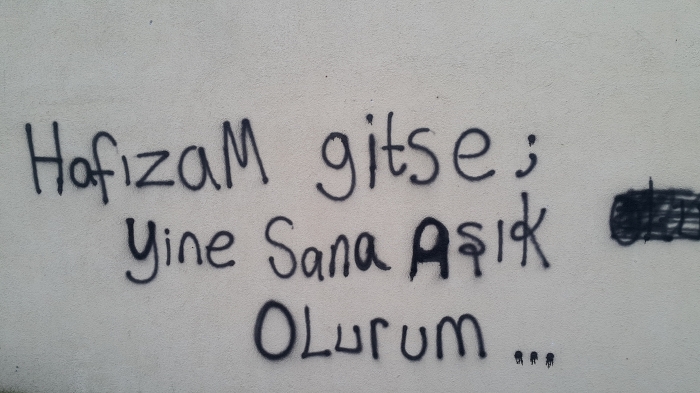 HafızaM gitse;
Yine Sana AŞıK
OLurum...